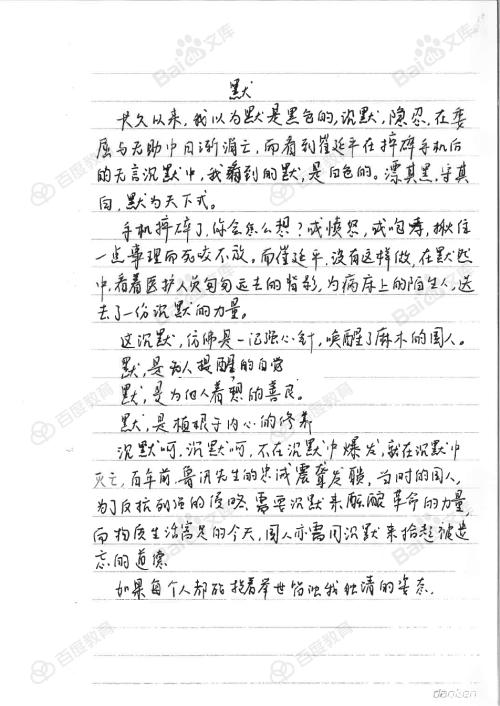 默
长久以来,我以为默是黑色的,沉默,隐忍,在委
屈与无助中日渐消亡,而看到崔延平在摔碎手机后
的无言沉默中,我看到的默,是白色的。漂其黑,守其
白,默为天下式。
手机摔碎了,你会怎么想?或愤怒,或咆哮,揪住
一点事理而死咬不放。而崔延平,没有这样做,在默然
中,看着医护人员匆匆远去的背影,为病床上的陌生人,送
去了一份沉默的力量。
这沉默,仿佛是一记强心针,唤醒了麻木的国人。
默,是无人提醒的自觉
默,是为他人着想的善良。
默,是植根于内心的修养
沉默呵,沉默呵,不在沉默中爆发,就在沉默中
灭亡,百年前,鲁迅先生的忠诚震聋发聩,当时的国人,
为了反抗列强的侵略,需要沉默来酝酿革命的力量,
而物质生活富足的今天,国人亦需用沉默来拾起被遗
忘的道德
如果每个人都能抱着举世皆浊我独清的姿态,
Baidu文库
百度教育
Baidu文库
百度教育
百度教育
百度教育